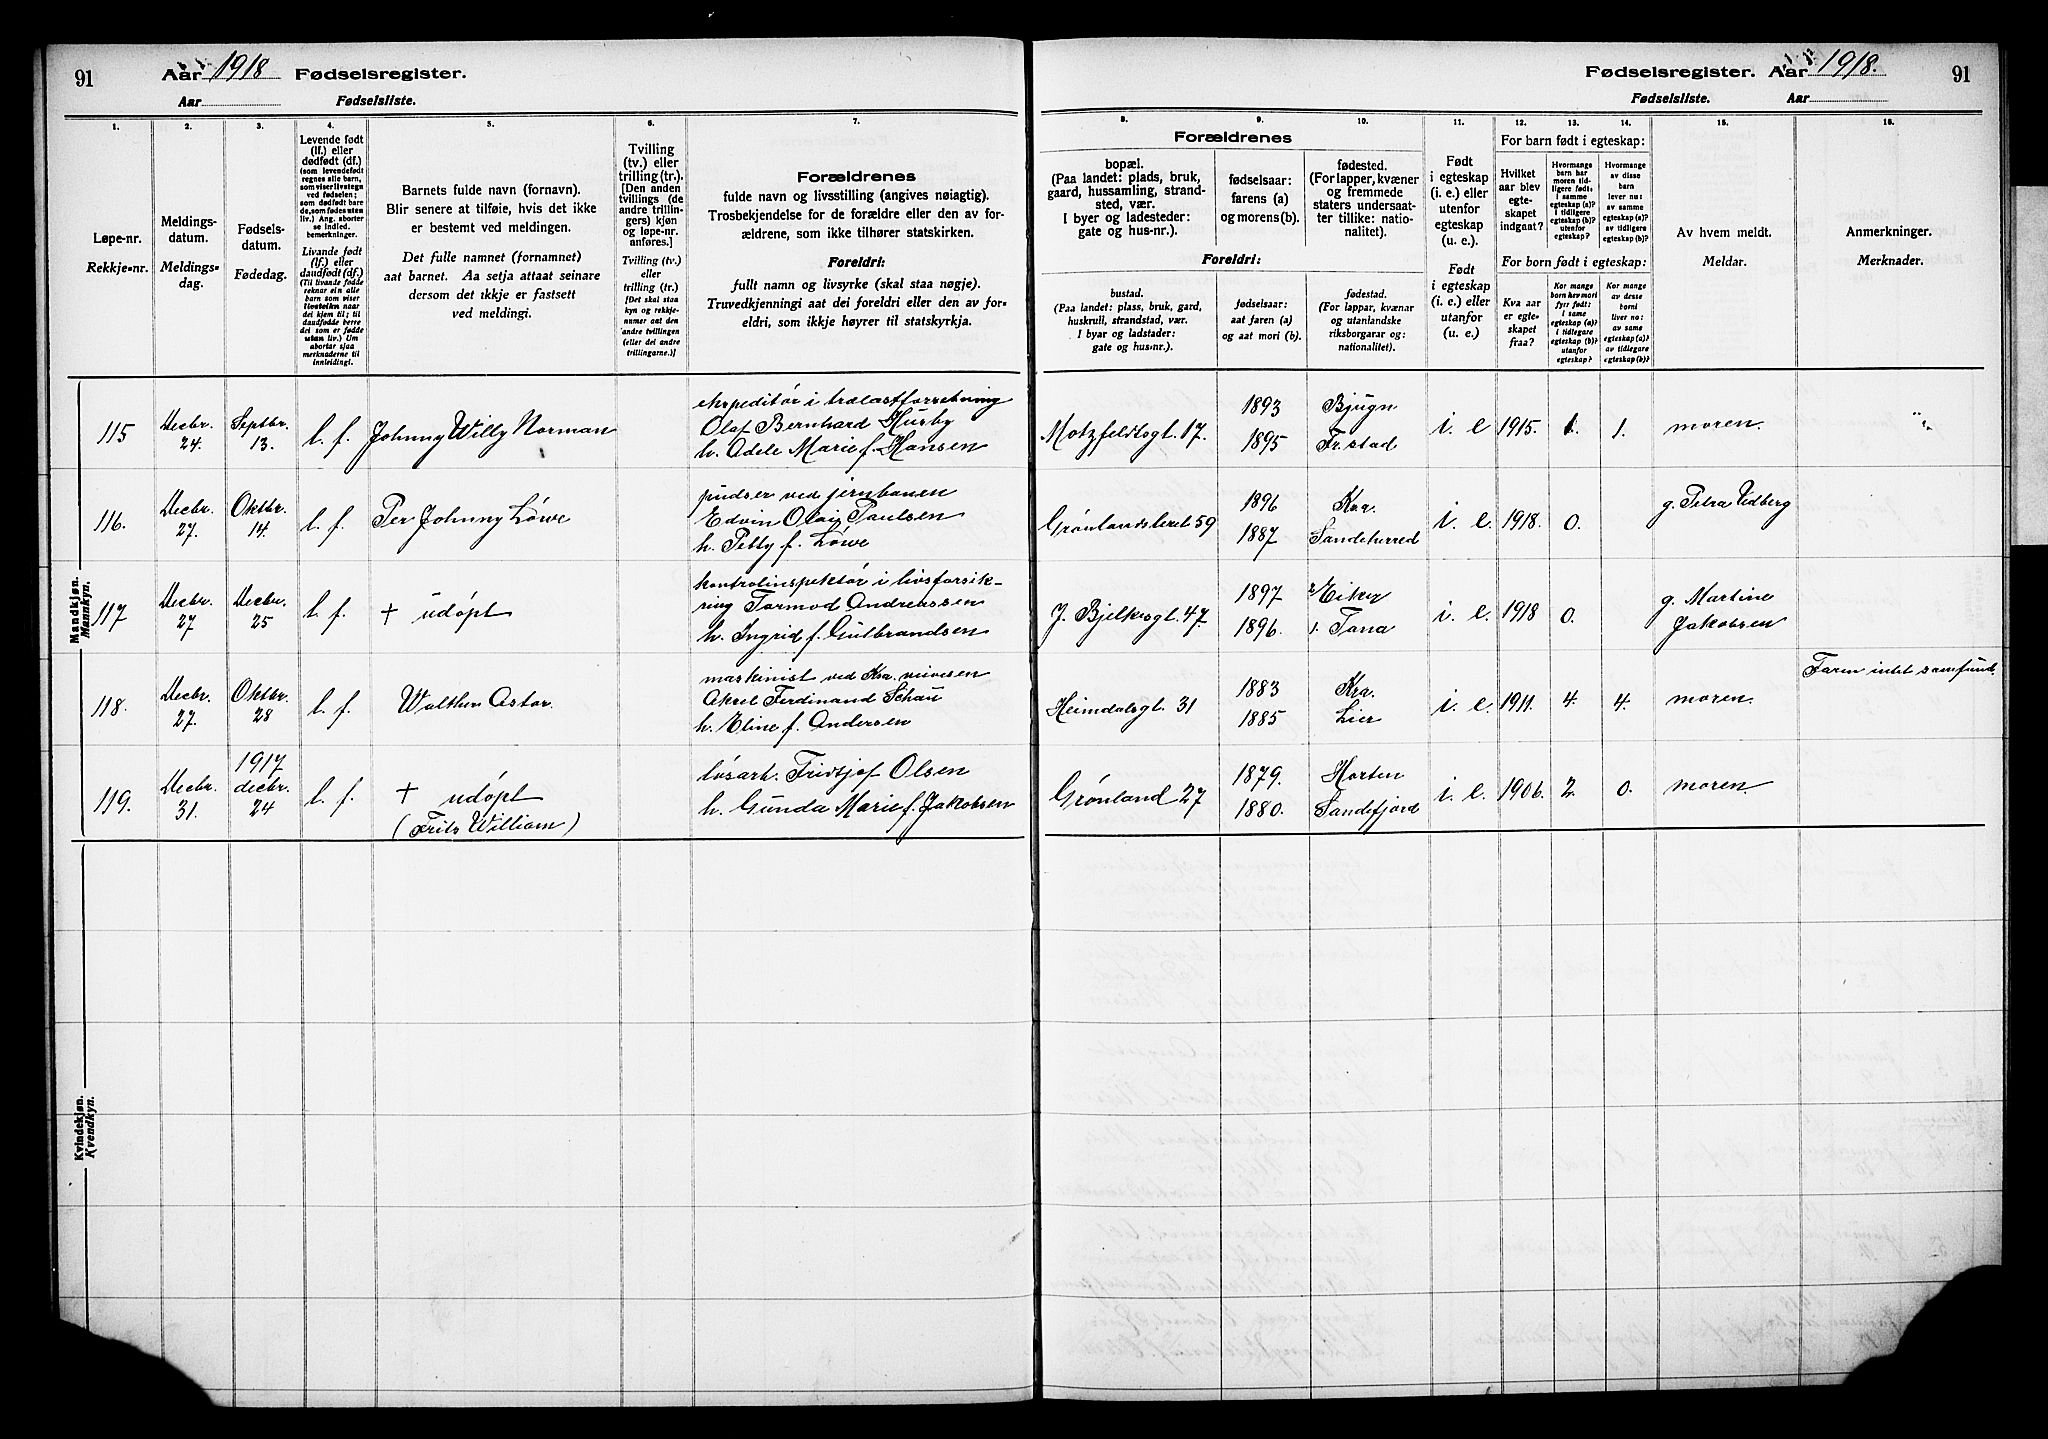 91 Aar 1918 Fødselsregister.
Aar Fødselsliste.
Fødselsregister. Aar 1918. 91
Fødselsliste. Aar
1. 2. 3. 4. 5. 6. 7.
Løpe-nr.
Rekkje-nr.
Meldings-
datum.
Meldings-
dag.
Fødsels-
datum.
Fødedag.
Levende født
(lf.) eller
dødfødt (df.)
(som levendefødt
regnes alle barn,
som viser livstegn
ved fødselen;
som dødfødt bare
de, som fødes uten
liv.) Ang. aborter
se indled.
bemerkninger.
Livande født
(lf.) eller
daudfødt (df.)
(Til livande fødde
reknar ein alle
barn som viser
livsteikn naar
dei kjem til; til
daudfødde berre
dei som er fødde
utan liv.) Um
abortar sjaa
merknaderne til
innleidingi.
Barnets fulde navn (fornavn).
Blir senere at tilføie, hvis det ikke
er bestemt ved meldingen.
Det fulle namnet (fornamnet)
aat barnet. Aa setja attaat seinare
dersom det ikkje er fastsett
ved meldingi.
Tvilling
(tv.) eller
trilling (tr.).
[Den anden
tvillings (de
andre trillin-
gers) kjøn
og løpe-nr.
anføres.]
Tvilling (tv.)
eller
trilling (tr.)
[Det skal staa
kyn og rekkje-
numer aat den
andre tvillingen
(eller dei andre
trillingarne.)]
Forældrenes
fulde navn og livsstilling (angives nøiagtig).
Trosbekjendelse for de forældre eller den av for-
ældrene, som ikke tilhører statskirken.
Foreldri:
fullt namn og livsyrke (skal staa nøgje).
Truvedkjenningi aat dei foreldri eller den av for-
eldri, som ikkje høyrer til statskyrkja.
8. 9. 10. 11. 12. 13. 14. 15. 16.
Forældrenes
bopæl.
(Paa landet: plads, bruk,
gaard, hussamling, strand-
sted, vær.
I byer og ladesteder:
gate og hus-nr.).
fødselsaar:
farens (a)
og morens (b).
fødested.
(For lapper, kvæner
og fremmede
staters undersaat-
ter tillike: natio-
nalitet).
Foreldri:
bustad.
(Paa landet: plass, bruk, gard,
huskrull, strandstad, vær.
I byar og ladstader:
gate og hus-nr.).
fødselsaar:
aat faren (a)
og aat mori (b).
fødestad.
(For lappar, kvænar
og utanlandske
riksborgarar og:
nationalitet).
Født
i egteskap
(i. e.) eller
utenfor
egteskap
(u. e.).
Født
i egteskap
(i. e.) eller
utanfor
(u. e.)
For barn født i egteskap:
Hvilket
aar blev
egte-
skapet
indgaat?
Hvormange
barn har
moren tid-
ligere født:
i samme
egteskap (a)?
i tidligere
egteskap (b)?
utenfor
egteskap?
Hvormange
av disse
barn
lever nu:
av samme
egteskap (a)?
av tidligere
egteskap (b)?
For born født i egteskap:
Kva aar
er egte-
skapet
fraa?
Kor mange
born hev mori
fyrr født:
i same
egteskap (a)?
i tidlegare
egteskap (b)?
utanfor
egteskap?
Kor mange
av desse
borni
liver no:
av same
egteskap (a)?
av tidlegare
egteskap (b)?
Av hvem meldt.
Meldar.
Anmerkninger.
Merknader.
Mandkjøn.
Mannkyn.
115 Decbr. 24. Septbr. 13. l. f. Johnny Willy Norman
ekspeditør i trælastforretning
Olaf Bernhard Husby
h. Adele Marie f. Hansen
Motzfeldtsgt. 17. 1893 1895 Bjugn Fr.stad i. e 1915. 1. 1. moren.
116. Decbr. 27. Oktbr. 14. l. f. Per Johnny Löwe
pudser ved jernbanen
Edvin Olaij Paulsen
h. Petty f. Löwe
Grønlandsleret 59 1896 1887 Kra. Sandeherred i. e. 1918. 0. g. Petra Vidberg
117 Decbr. 27 Decbr. 25 l. f. + udøpt
kontrolinspektør i livsforsik-
ring Tormod Andreassen
h. Ingrid f. Gulbrandsen
J. Bjelkesgt. 47. 1897 1896. Eiker Tana i. e. 1918 0. g. Martine Jakobsen
118. Decbr. 27. Oktbr. 28 l. f. Walther Astor.
maskinist ved Kra. veivesen
Aksel Ferdinand Schau
h. Eline f. Andersen
Heimdalsgt. 31 1883 1885 Kra. Lier i. e. 1911. 4. 4. moren. Faren intet samfund.
119. Decbr. 31. 1917 decbr. 24 l. f. + udøpt
(Frits William)
løsarb. Fridtjof Olsen
h. Gunda Marie f. Jakobsen
Grønland 27 1879. 1880. Horten Sandefjord i. e. 1906. 2. 0. moren.
Kvindekjøn.
Kvendkyn.